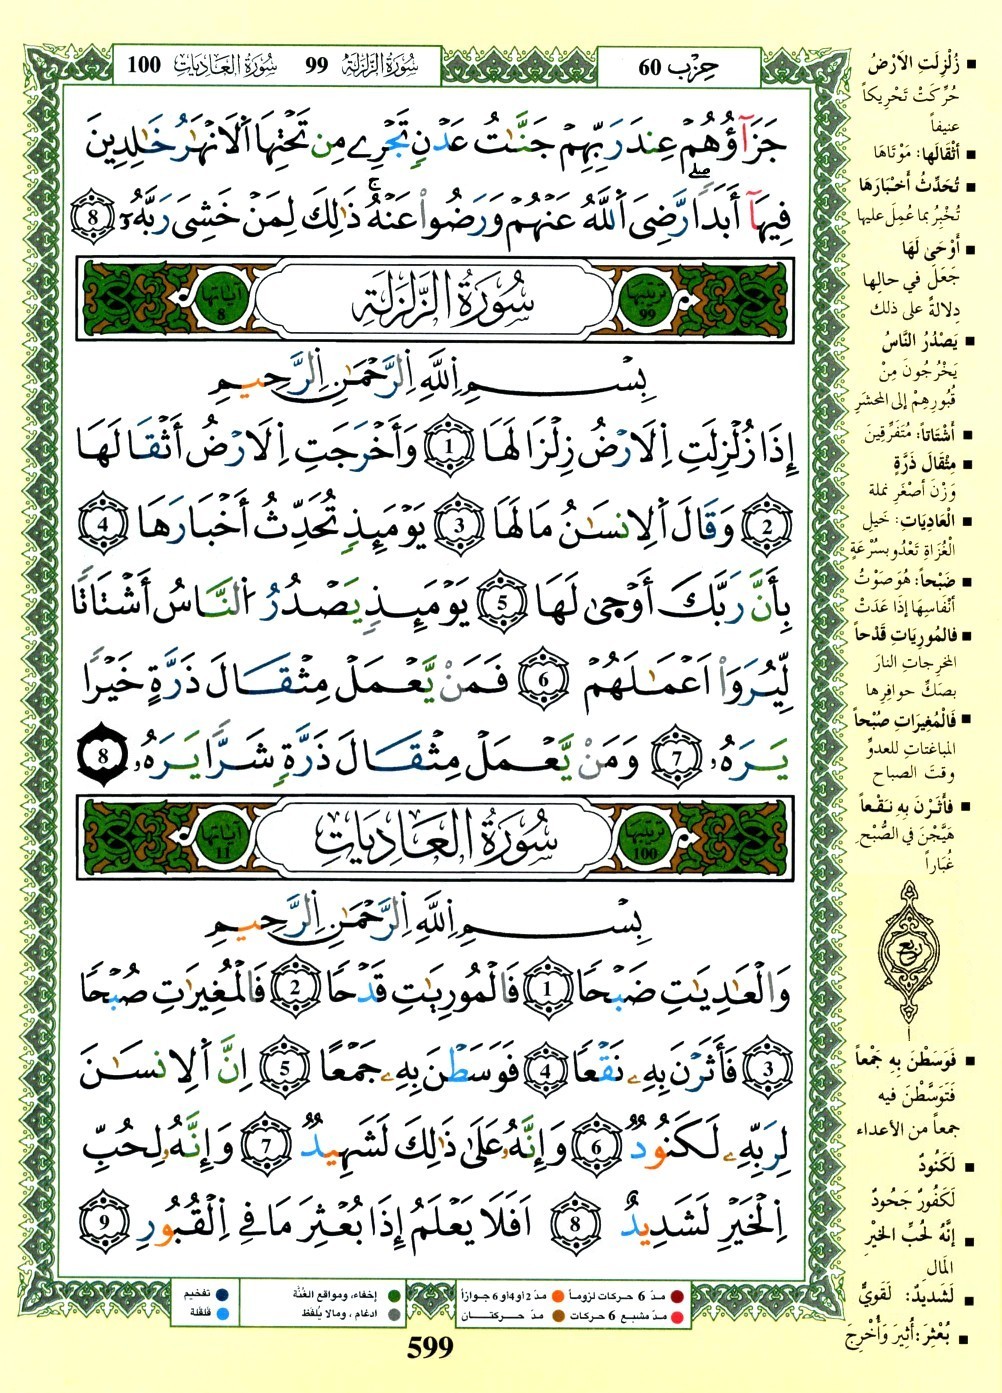 سُورَةُ العَادِيَات 100 سُورَةُ الزَّلْزَلَةِ 99
حِزْب 60
جَزَآؤُهُمْ عِندَ رَبِّهِمْ جَنَّٰتُ عَدْنٍ تَجْرِے مِن تَحْتِهَا اَ۬لَانْهَٰرُ خَٰلِدِينَ
فِيهَآ أَبَداٗ رَّضِيَ اَ۬للَّهُ عَنْهُمْ وَرَضُواْ عَنْهُۖ ذَٰلِكَ لِمَنْ خَشِيَ رَبَّهُۥ 8
ترتيبها 99
سُورَةُ الزَّلْزَلَةِ
آياتها 8
بِسْمِ اِ۬للَّهِ اِ۬لرَّحْمَٰنِ اِ۬لرَّحِيمِ
إِذَا زُلْزِلَتِ اِ۬لَارْضُ زِلْزَالَهَا 1 وَأَخْرَجَتِ اِ۬لَارْضُ أَثْقَالَهَا
2 وَقَالَ اَ۬لِانسَٰنُ مَا لَهَا 3 يَوْمَئِذٖ تُحَدِّثُ أَخْبَارَهَا 4
بِأَنَّ رَبَّكَ أَوْحٜىٰ لَهَا 5 يَوْمَئِذٖ يَصْدُرُ اُ۬لنَّاسُ أَشْتَاتاٗ
لِّيُرَوَاْ اَعْمَٰلَهُمْ 6 فَمَنْ يَّعْمَلْ مِثْقَالَ ذَرَّةٍ خَيْراٗ
يَرَهُۥ 7 وَمَنْ يَّعْمَلْ مِثْقَالَ ذَرَّةٖ شَرّاٗ يَرَهُۥ 8
ترتيبها 100
سُورَةُ العَادِيَاتِ
آياتها 11
بِسْمِ اِ۬للَّهِ اِ۬لرَّحْمَٰنِ اِ۬لرَّحِيمِ
وَالْعَٰدِيَٰتِ ضَبْحاٗ 1 فَالْمُورِيَٰتِ قَدْحاٗ 2 فَالْمُغِيرَٰتِ صُبْحاٗ
3 فَأَثَرْنَ بِهِۦ نَقْعاٗ 4 فَوَسَطْنَ بِهِۦ جَمْعاً 5 اِنَّ اَ۬لِانسَٰنَ
لِرَبِّهِۦ لَكَنُودٞ 6 وَإِنَّهُۥ عَلَىٰ ذَٰلِكَ لَشَهِيدٞ 7 وَإِنَّهُۥ لِحُبِّ
اِ۬لْخَيْرِ لَشَدِيدٌ 8 اَفَلَا يَعْلَمُ إِذَا بُعْثِرَ مَا فِي اِ۬لْقُبُورِ 9
زُلْزِلَتِ الاَرْضُ
حُرِّكَتْ تَحْرِيكاً
عنيفاً
أَثْقَالَها: مَوْتَاهَا
تُحَدِّثُ أَخْبَارَهَا
تُخْبِرُ بما عُمِلَ عليها
أَوْحَى لَهَا
جَعَلَ في حالِها
دِلالةً على ذلك
يَصْدُرُ النَّاسُ
يَخْرُجُونَ مِنْ
قُبُورِهِمْ إلى المحشَرِ
أَشْتَاتاً: مُتَفَرِّقِينَ
مِثْقَالَ ذَرَّةٍ
وَزْنَ أَصْغَرِ نملة
الْعَادِيَاتِ: خَيل
الغُزَاةِ تَعْدُو بسُرْعَةٍ
ضَبْحاً: هُوَ صَوْتُ
أَنْفاسِهَا إِذَا عَدَتْ
فالمُورِيَاتِ قَدْحاً
المخرِجاتِ النارَ
بصَكِّ حوافِرِها
فَالْمُغِيرَاتِ صُبْحاً
المباغتاتِ للعدوِّ
وقتَ الصباح
فَأَثَرْنَ بِهِ نَقْعاً
هَيَّجْنَ في الصُّبْحِ
غُبَاراً
ربع
فَوَسَطْنَ بِهِ جَمْعاً
فَتَوَسَّطْنَ فيه
جمعاً من الأعداء
لَكَنُودٌ
لَكَفُورٌ جَحُودٌ
إنَّهُ لِحُبِّ الخَيْرِ
المَال
لَشَدِيدٌ: لَقَوِيٌّ
بُعْثِرَ: أُثِيرَ وَأُخْرِجَ
مدّ 6 حركات لزوماً مدّ 2 أو 4 أو 6 جوازاً
مدّ مشبع 6 حركات مدّ حركتان
إخفاء، ومواقع الغُنَّة
ادغام، ومالا يُلفظ
تفخيم
قلقلة
599